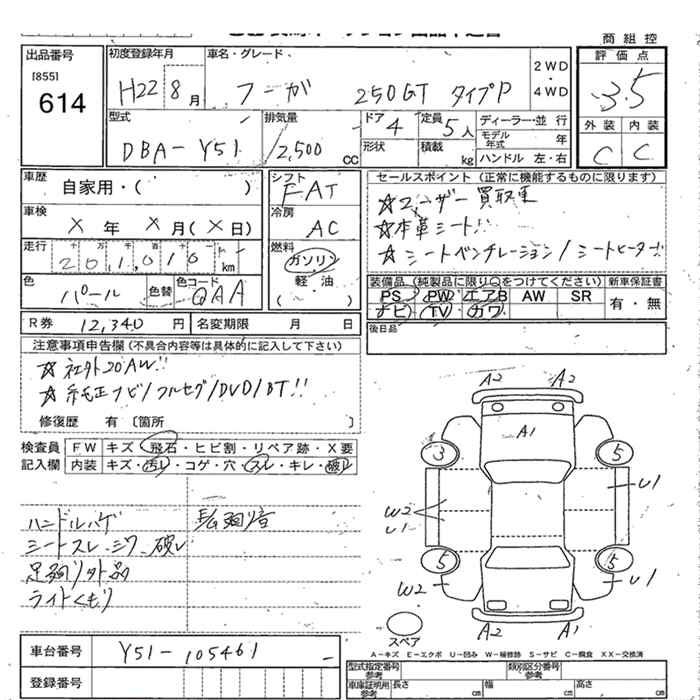 商組控
出品番号
[855]
614
初度登録年月
H22 8月
車名・グレード
フーガ 250GT タイプP
2WD・4WD
評価点
3.5
外装 内装
C C
型式
DBA-Y51
排気量
2,500 CC
ドア 4
形状
定員 5人
積載 kg
ディーラー・並行
モデル年式 年
ハンドル 左・右
車歴
自家用・( )
シフト
FAT
車検
X年X月(X日)
冷房
AC
走行
十 万 千 百 十
201,010 km
燃料
ガソリン
軽・油
( )
色
パール
色替
色コード
QAA
セールスポイント (正常に機能するものに限ります)
☆ユーザー買取車
☆本革シート!!
☆シートベンチレーション/シートヒーター!!
装備品 (純製品に限り○をつけてください)
新車保証書
PS PW エアB AW SR
有・無
ナビ TV カワ
R券 12,340円
名変期限 月 日
後日品
注意事項申告欄(不具合内容等は具体的に記入して下さい)
☆社外20AW!!
☆純正ナビ/フルセグ/DVD/BT!!
修復歴 有 〔箇所 〕
検査員記入欄
FW キズ・飛石・ヒビ割・リペア跡・X要
内装 キズ・汚レ・コゲ・穴・スレ・キレ・破レ
ハンドルハゲ
シートスレ、シワ、破レ
ライトくもり
A2 A2
A1
3 5
W2
U1
U1
5 5
W2
U1
A2 A1
スペア
A-キズ E-エクボ U-凹み W-補修跡 S-サビ C-腐食 XX-交換済
車台番号
Y51-105461
登録番号
型式指定番号 参考
類別区分番号 参考
車庫証明用 参考
長さ cm
幅 cm
高さ cm